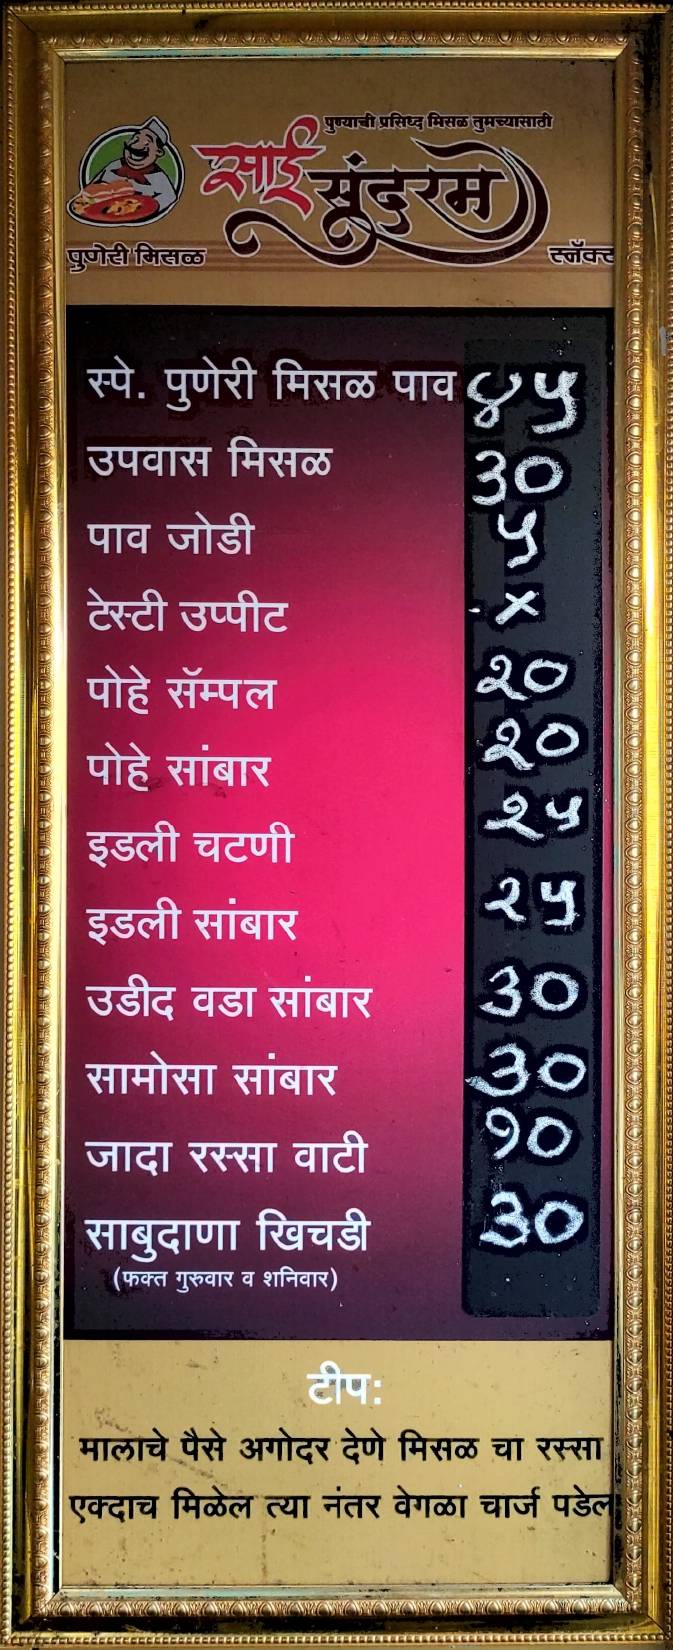 पुण्याची प्रसिध्द मिसळ तुमच्यासाठी
साई सुंदरम
पुणेरी मिसळ स्नॅक्स
स्पे. पुणेरी मिसळ पाव ४५
उपवास मिसळ ३०
पाव जोडी ५
टेस्टी उप्पीट ×
पोहे सॅम्पल २०
पोहे सांबार २०
इडली चटणी २५
इडली सांबार २५
उडीद वडा सांबार ३०
सामोसा सांबार ३०
जादा रस्सा वाटी १०
साबुदाणा खिचडी ३०
(फक्त गुरुवार व शनिवार)
टीप:
मालाचे पैसे अगोदर देणे मिसळ चा रस्सा
एक्दाच मिळेल त्या नंतर वेगळा चार्ज पडेल